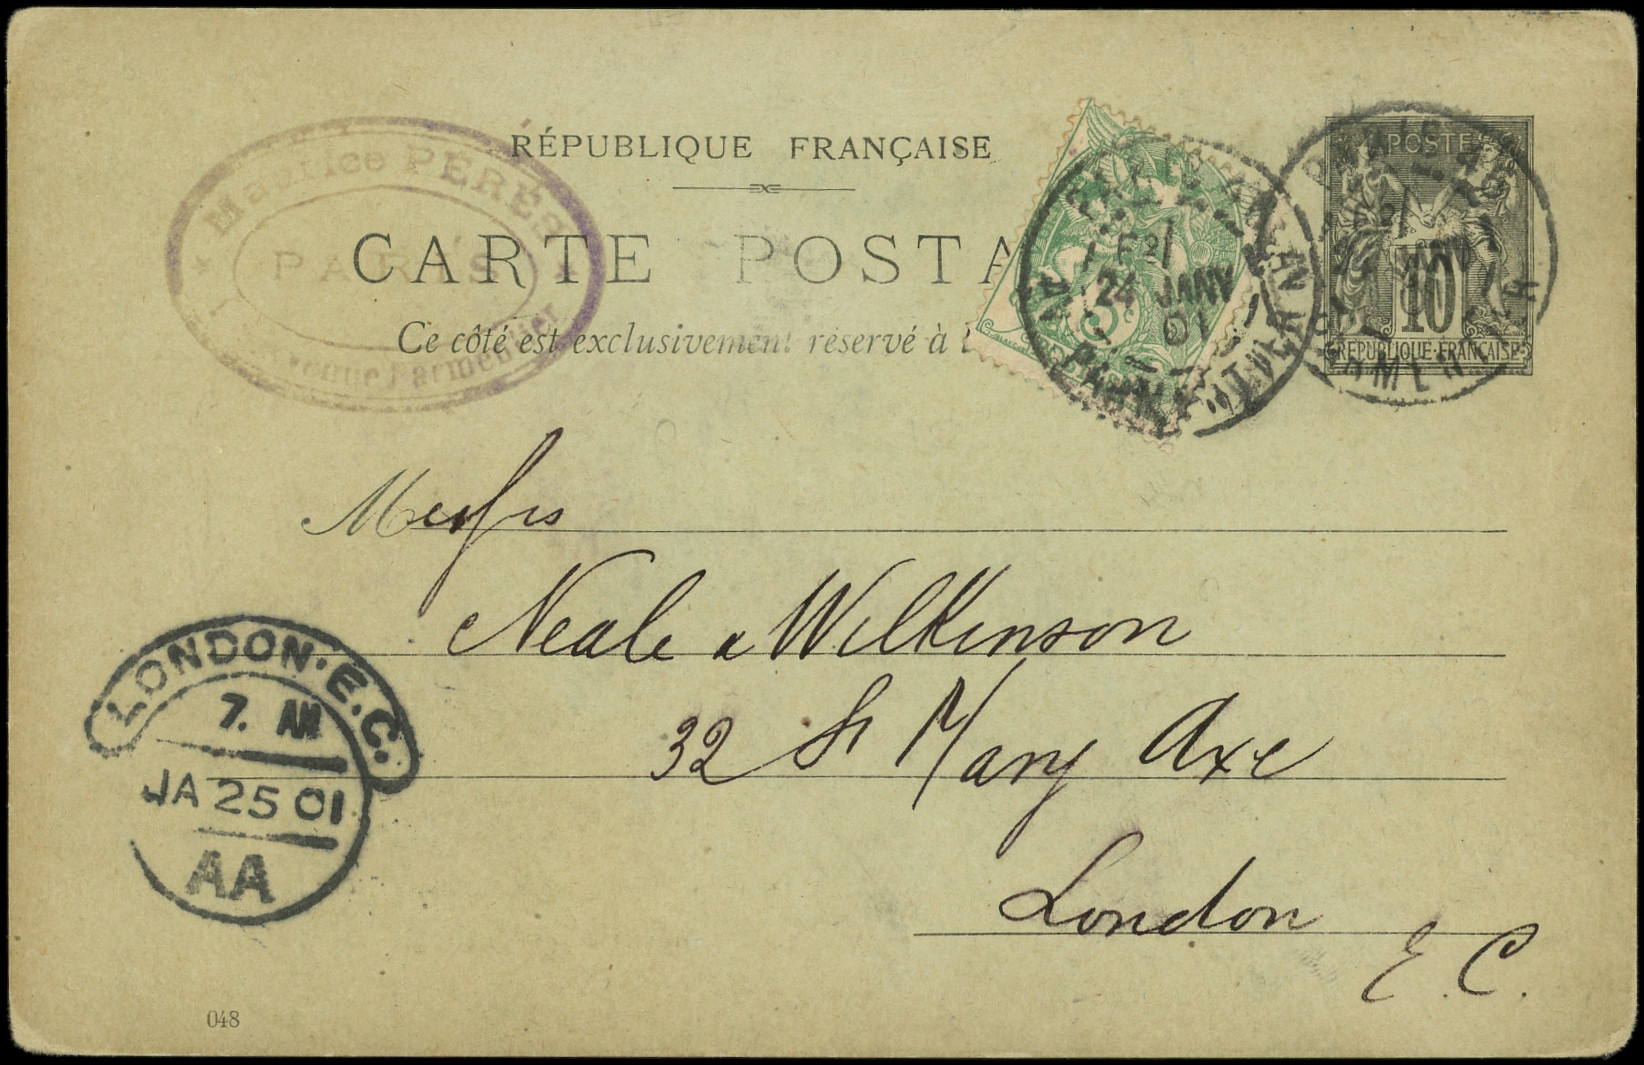 RÉPUBLIQUE FRANÇAISE
CARTE POSTA
Ce côté est exclusivement réservé à l
Maurice PERÈS
PARIS
Avenue Parmentier
5
24 JANV
01
POSTE
10
REPUBLIQUE FRANÇAISE
Messrs
Neale & Wilkinson
32 St Mary Axe
London
E.C.
LONDON·E.C.
7. AM
JA 25 01
AA
048